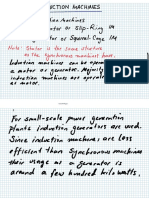 UCTION MACHINES
ction machines
otor or Slip-Ring IM
otor or Squirrel-Cage IM
Note: Stator is the same structure
as the synchronous machines have.
Induction machines can be operated
a motor or generator. Majority
induction machines are operated as
For small-scale power generation
plants induction generators are used.
Since induction machines are less
efficient than Synchronous machines
their usage as a generator is
around a few hundred kilowatts.